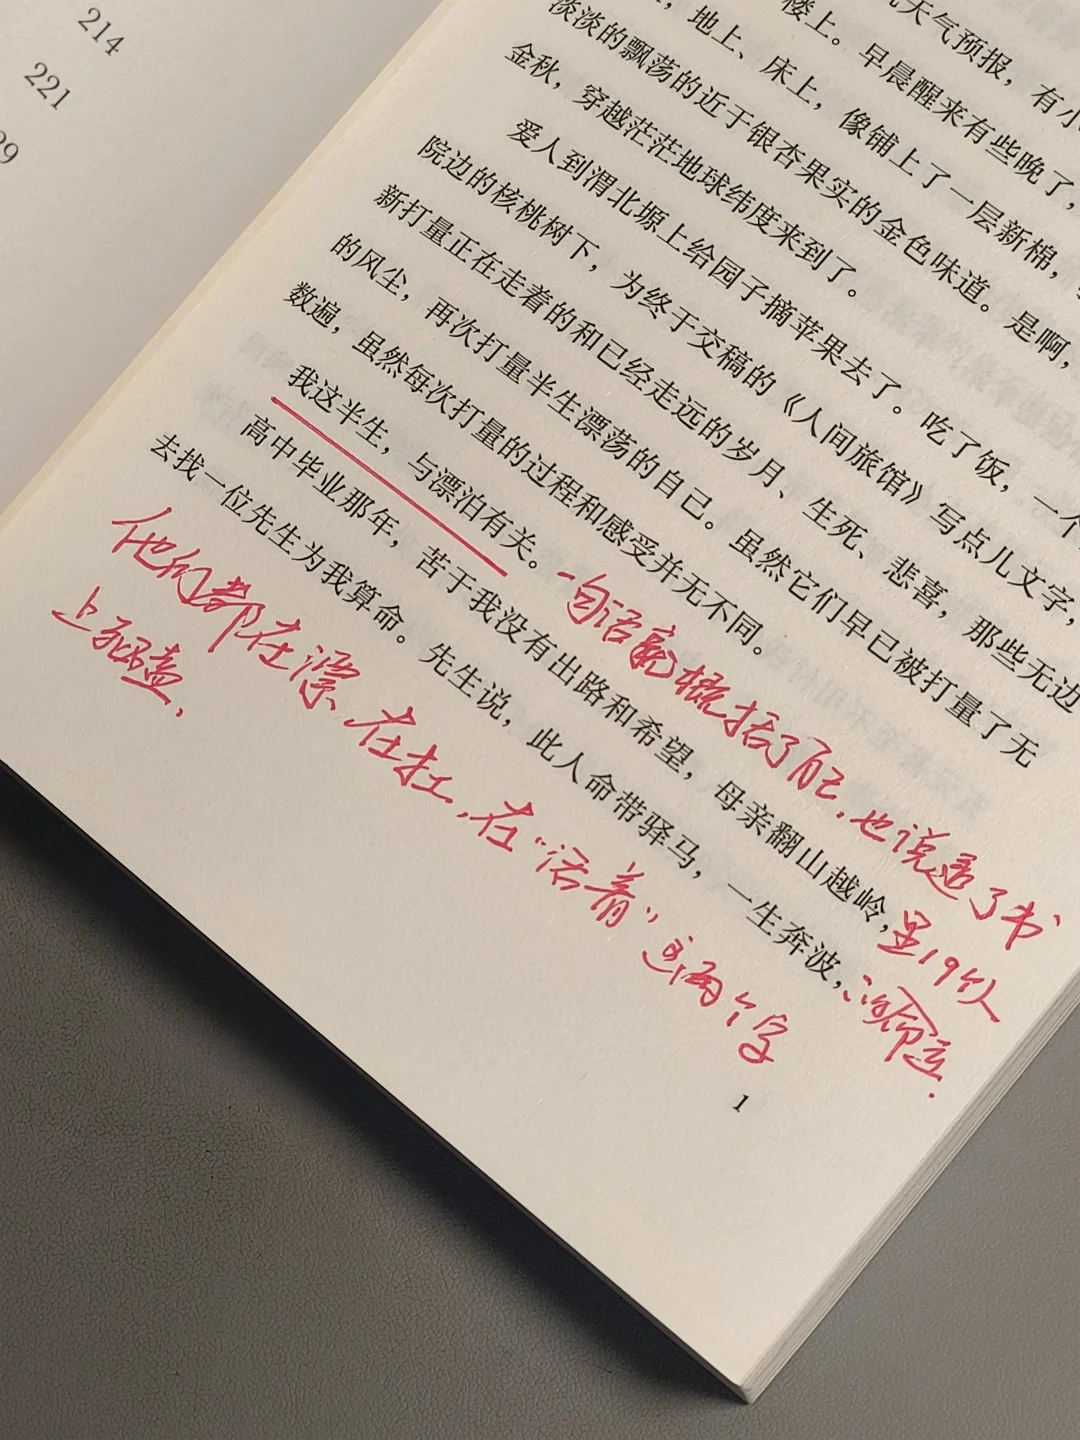 214
221
天气预报，有小
楼上。早晨醒来有些晚了，
，地上、床上，像铺上了一层新棉，
淡淡的飘荡的近于银杏果实的金色味道。是啊，
金秋，穿越茫茫地球纬度来到了。
爱人到渭北塬上给园子摘苹果去了。吃了饭，一个
院边的核桃树下，为终于交稿的《人间旅馆》写点儿文字，
新打量正在走着的和已经走远的岁月、生死、悲喜，那些无边
的风尘，再次打量半生漂荡的自己。虽然它们早已被打量了无
数遍，虽然每次打量的过程和感受并无不同。
我这半生，与漂泊有关。
一句话就概括了自己，也说透了书
里19个人的命运。
高中毕业那年，苦于我没有出路和希望，母亲翻山越岭，
去找一位先生为我算命。先生说，此人命带驿马，一生奔波，
他们都在漂，在扛，在“活着”这两个字
上死磕。
1